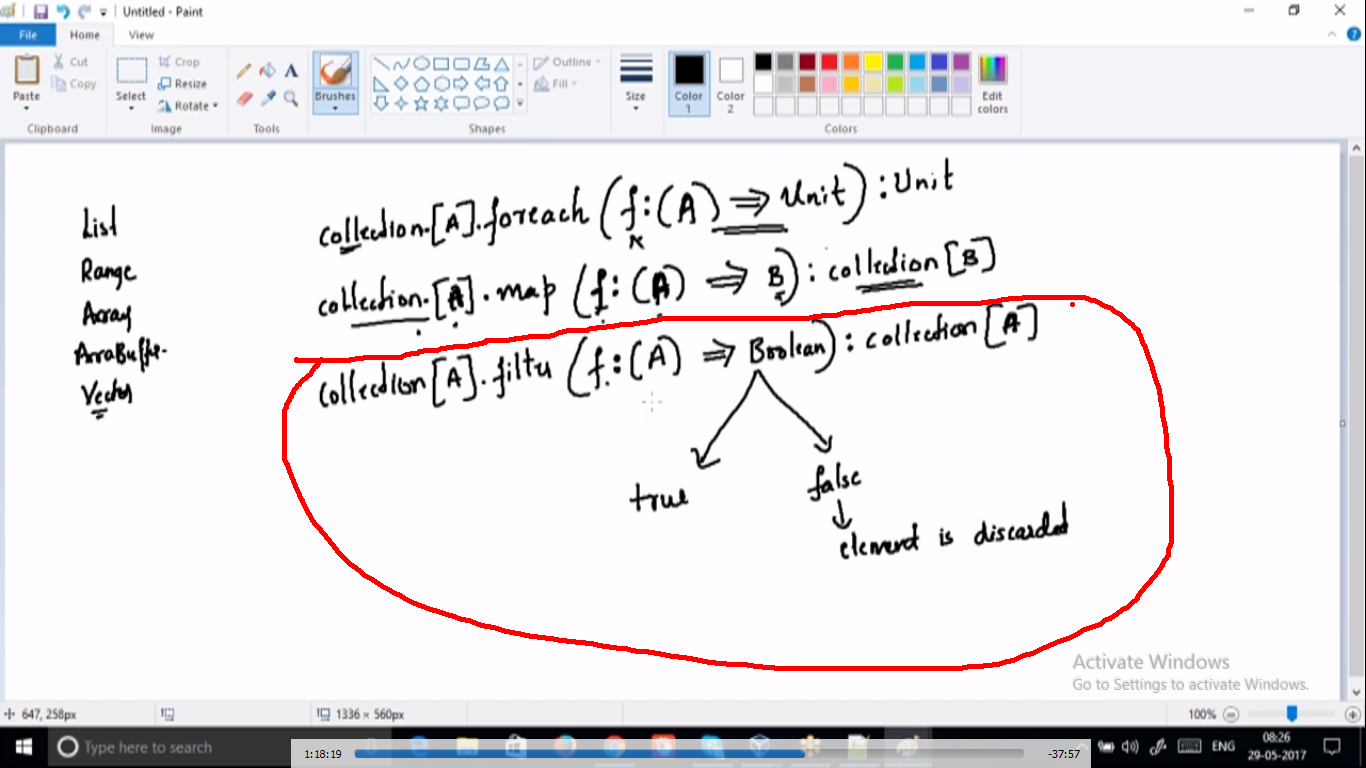 Untitled - Paint
File Home View
Paste Cut Copy Clipboard
Select Crop Resize Rotate Image
Tools
Brushes
Shapes
Outline Fill
Size
Color 1 Color 2 Colors
Edit colors
List
Range
Array
ArraBuffer
Vector
collection.[A].foreach (f:(A) => Unit) : Unit
collection.[A].map (f:(A) => B) : collection[B]
collection[A].filter (f:(A) => Boolean) : collection[A]
true
false
element is discarded
Activate Windows
Go to Settings to activate Windows.
647, 258px
1336 × 560px
100%
Type here to search
1:18:19
-37:57
ENG
08:26
29-05-2017